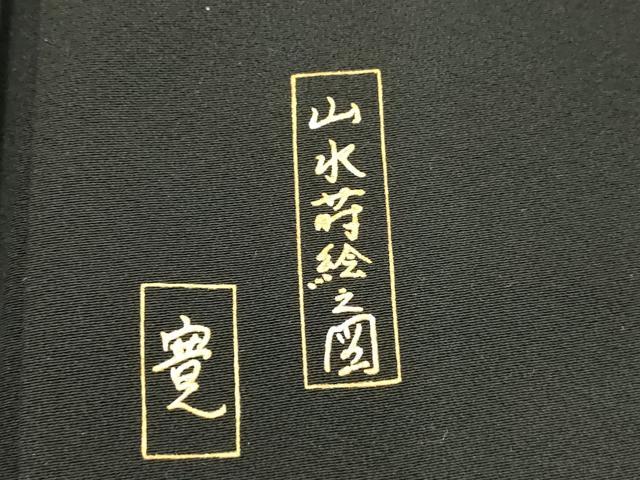 山水蒔絵之図
寛